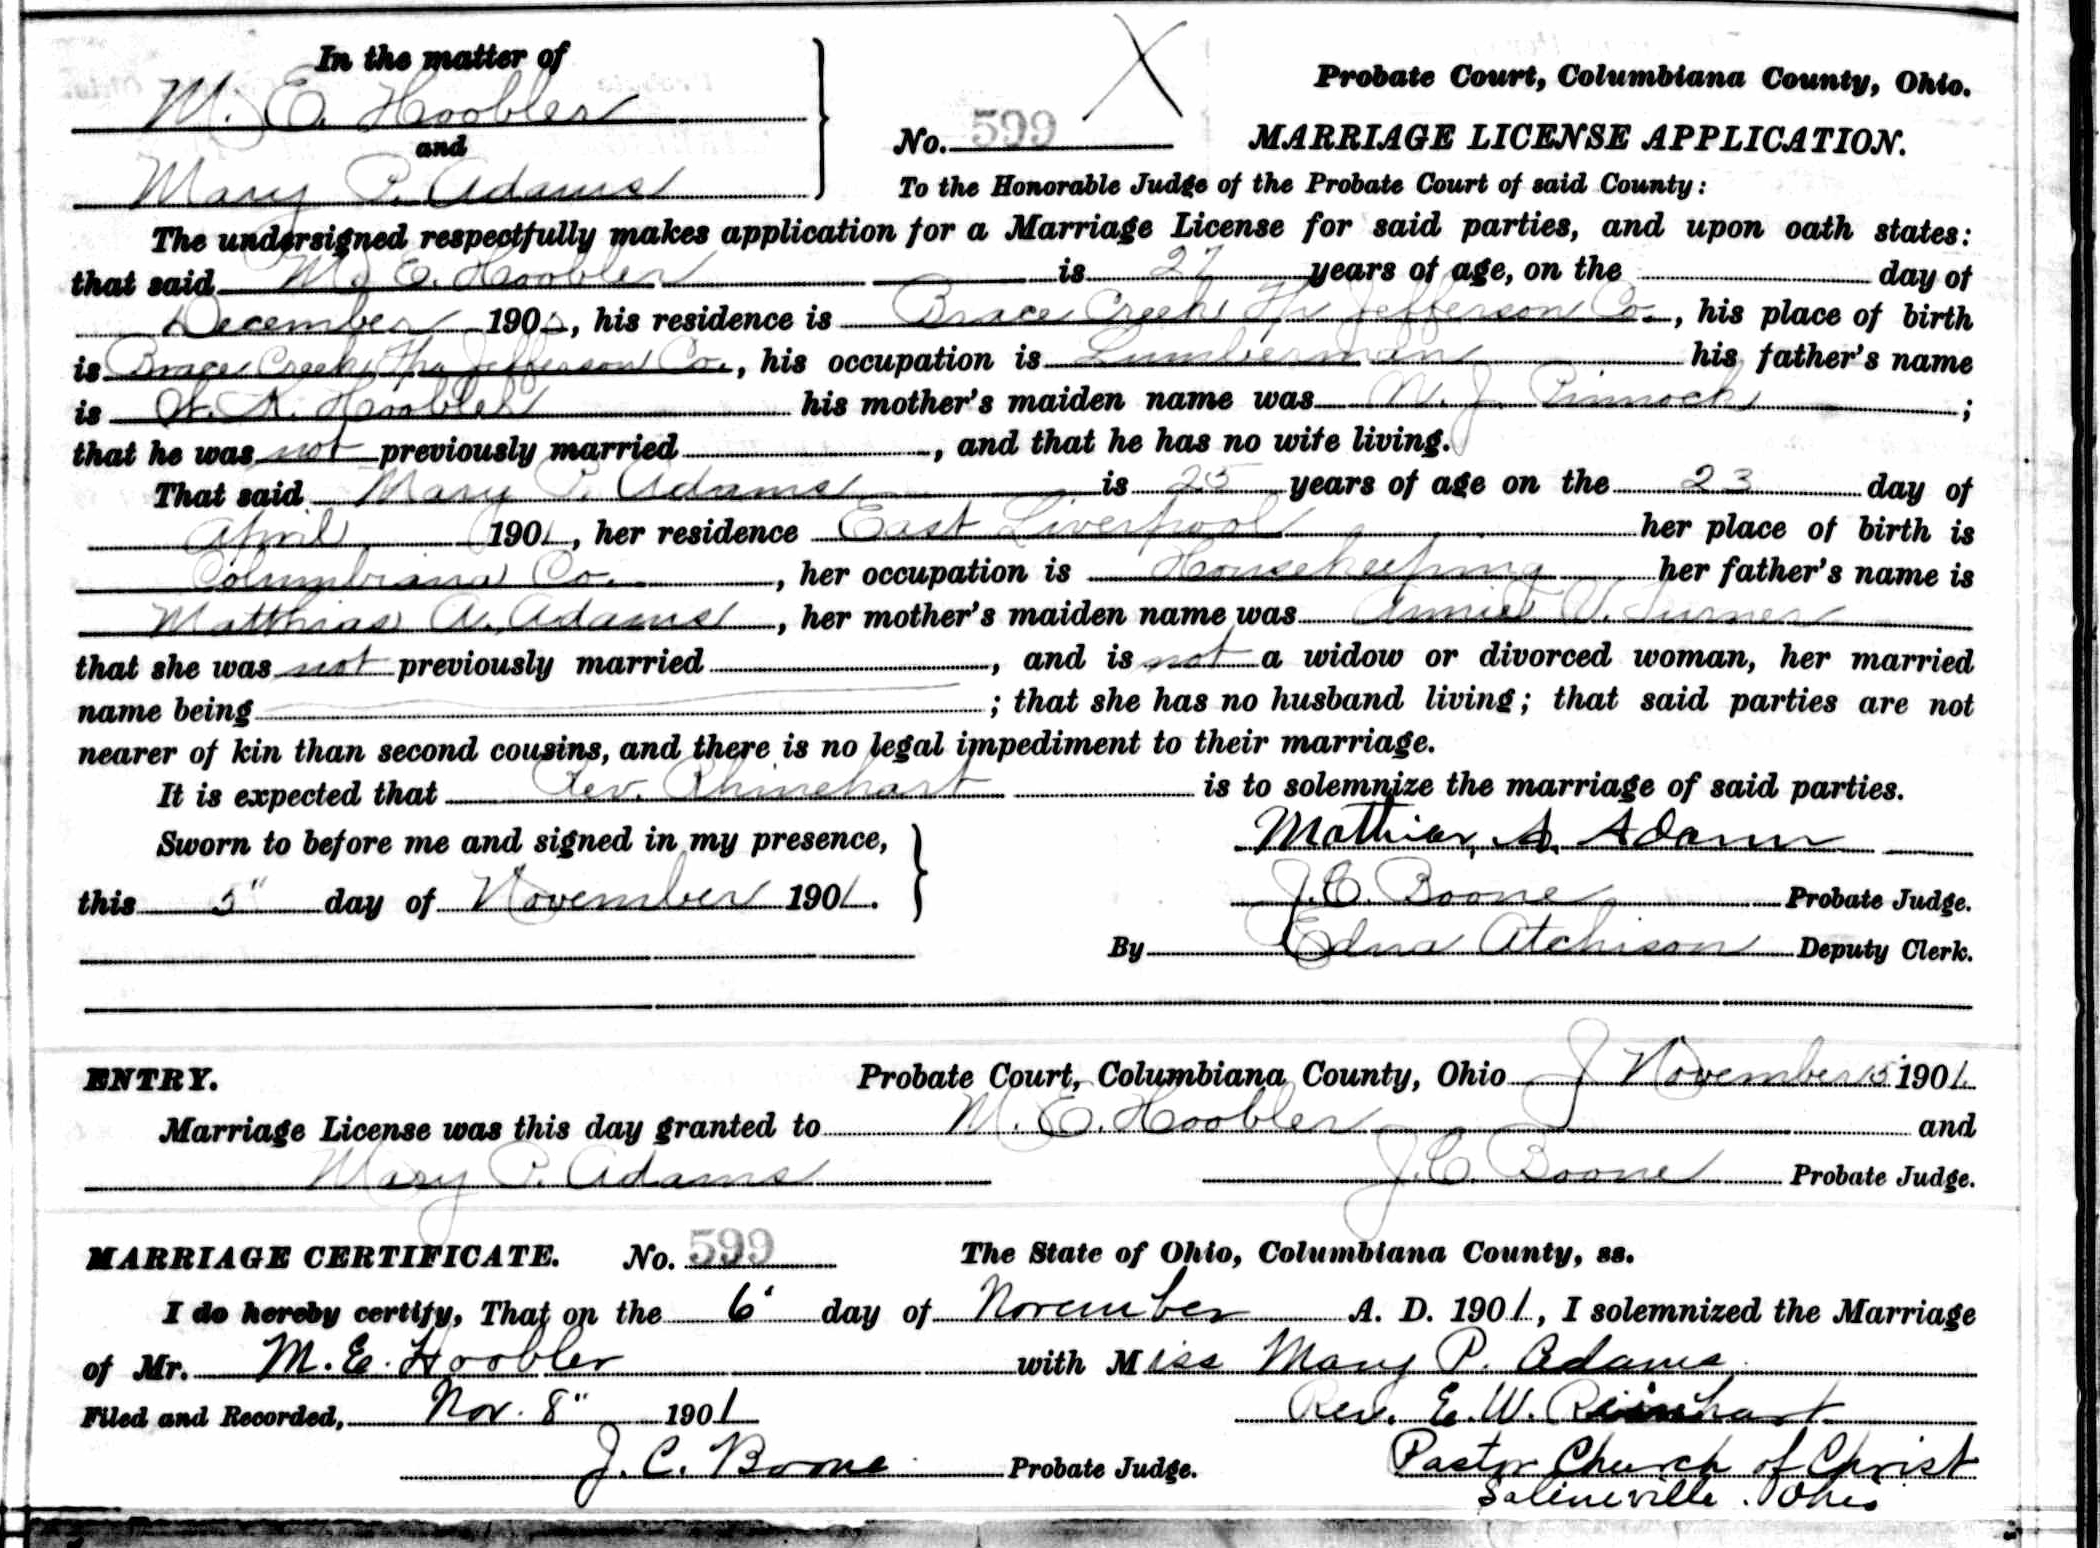 In the matter of
M. E. Hoobler
and
Mary P. Adams
No. 599
Probate Court, Columbiana County, Ohio.
MARRIAGE LICENSE APPLICATION.
To the Honorable Judge of the Probate Court of said County:
The undersigned respectfully makes application for a Marriage License for said parties, and upon oath states:
that said M. E. Hoobler is 27 years of age, on the day of
December 190 , his residence is Brace Creek Tp Jefferson Co. , his place of birth
is Brace Creek Tp Jefferson Co. , his occupation is Lumberman his father's name
is Hoobler his mother's maiden name was J. Pinnock ;
that he was not previously married , and that he has no wife living.
That said Mary P. Adams is 25 years of age on the 23 day of
April 1901 , her residence East Liverpool her place of birth is
Columbiana Co. , her occupation is Housekeeping her father's name is
Matthias A. Adams , her mother's maiden name was Annie V. Turner
that she was not previously married , and is not a widow or divorced woman, her married
name being ; that she has no husband living; that said parties are not
nearer of kin than second cousins, and there is no legal impediment to their marriage.
It is expected that Rev. Rhinehart is to solemnize the marriage of said parties.
Sworn to before me and signed in my presence,
this 5" day of November 1901.
Mathias A. Adams
J. C. Boone Probate Judge.
By Edna Atchison Deputy Clerk.
ENTRY. Probate Court, Columbiana County, Ohio November 5 1901.
Marriage License was this day granted to M. E. Hoobler and
Mary P. Adams J. C. Boone Probate Judge.
MARRIAGE CERTIFICATE. No. 599 The State of Ohio, Columbiana County, ss.
I do hereby certify, That on the 6" day of November A. D. 1901, I solemnized the Marriage
of Mr. M. E. Hoobler with Miss Mary P. Adams
Filed and Recorded, Nov. 8" 1901 Rev. E. W. Reinhart
J. C. Boone Probate Judge. Pastor Church of Christ
Salineville. Ohio